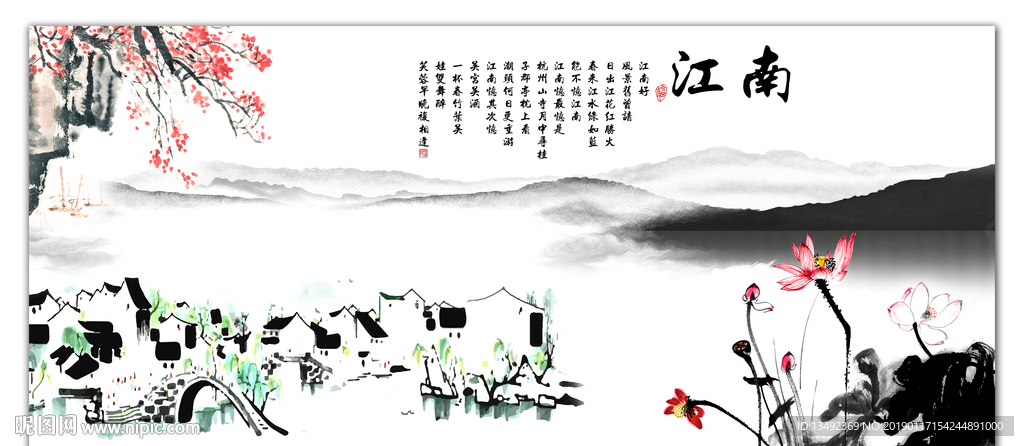 江南
江南好
風景舊曾諳
日出江花红勝火
春來江水綠如藍
能不憶江南
江南憶最憶是
杭州山寺月中尋桂
子郡亭枕上看
潮頭何日更重游
江南憶其次憶
吴宫吴酒
一杯春竹葉吴
娃雙舞醉
芙蓉早晚複相逢
昵图网 www.nipic.com
ID:13492369 NO:20190117154244891000